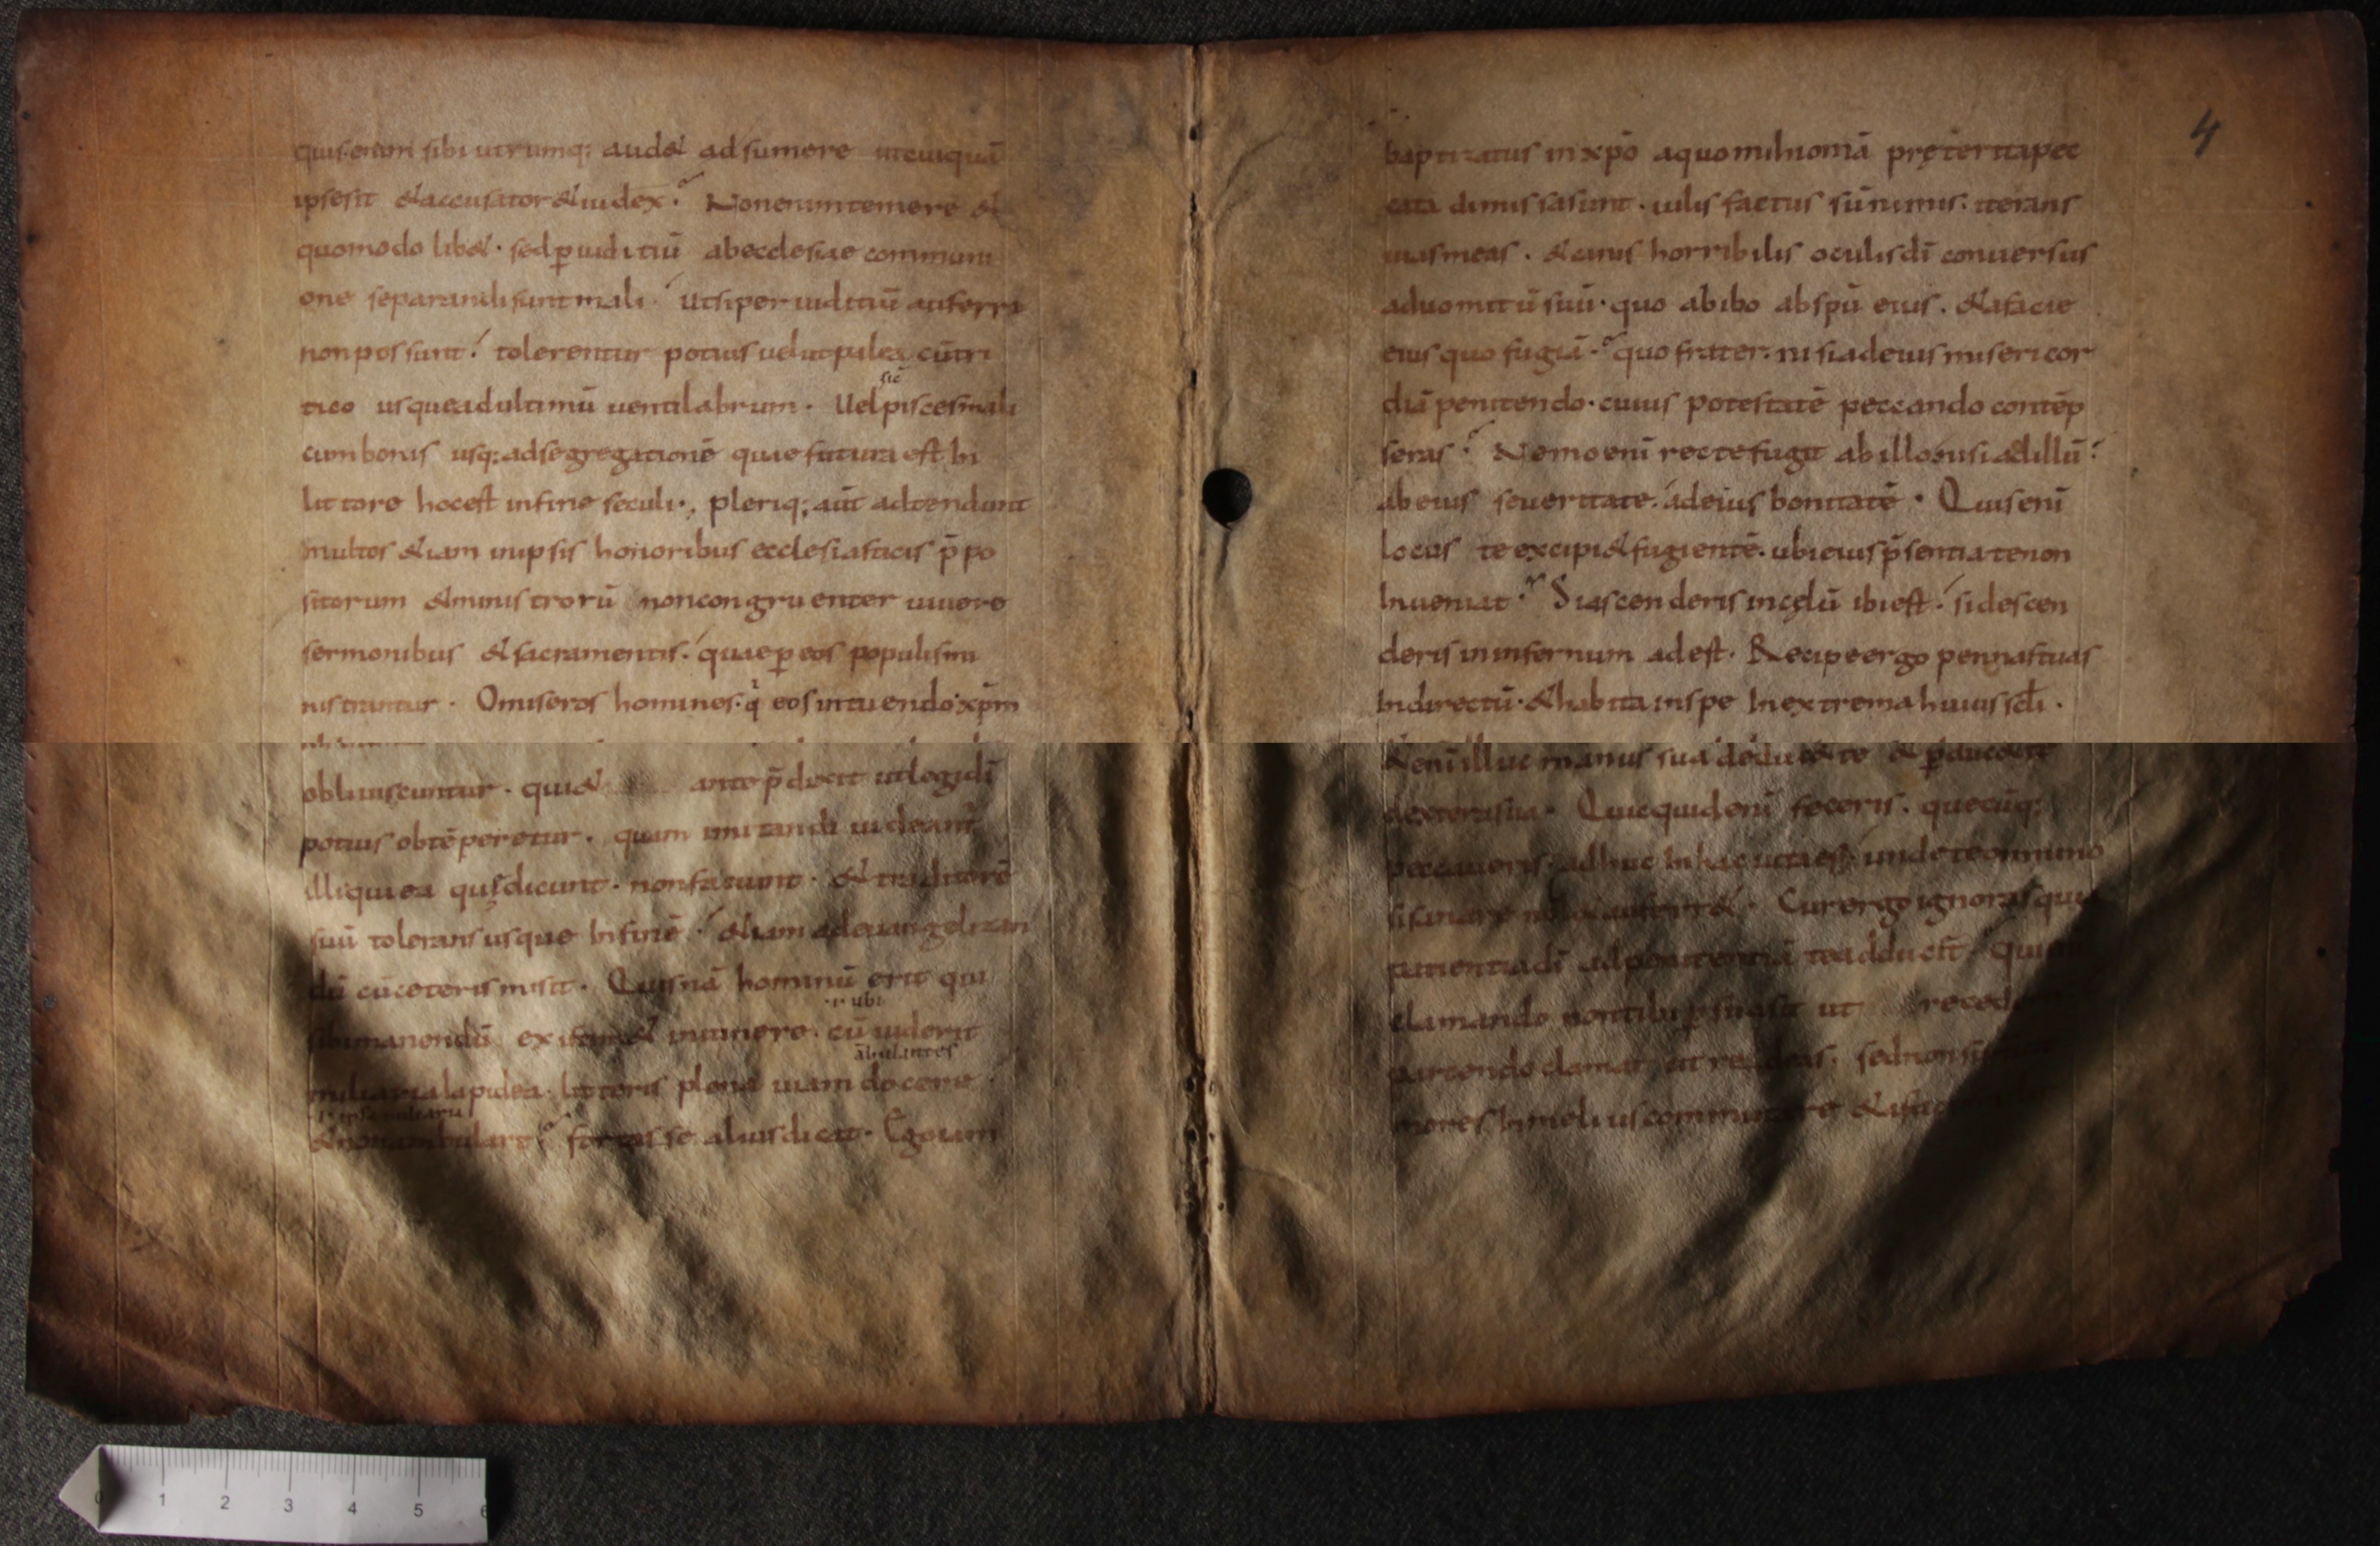 quis enim sibi utrumq; aud& adsumere ut cuiquā
ipse sit & accusator & iudex. Non enim temere &
quomodo lib&. sed p iuditiū ab ecclesiae communi
one separandi sunt mali. ut si per iuditiū auferri
non possunt. tolerentur potius uelut palea cū tri
tico usque ad ultimū uentilabrum. Uel pisces mali
sic
cum bonis usq; ad segregationē quae futura est in
littore hoc est in fine seculi. pleriq; aūt adtendunt
multos &iam in ipsis honoribus ecclesiasticis p̄po
sitorum & ministrorū non congruenter uiuere
sermonibus & sacramentis. quae p eos populis mi
nistrantur. O miseros homines. q eos intuendo xp̄m
obliuiscuntur. qui & ante p̄dixit ut legi dī
potius obtēperetur. quam imitandi uideant
illi qui ea quę dicunt. non faciunt. & traditorē
suū tolerans usque in finē. &iam ad euangelizan
dū cū ceteris misit. Quisnā hominū erit qui
sibi manendū in itinere. cū uiderit
ubi
miliaria lapidea. litteris plena uiam docere.
ābulantes
& non ambulare fortasse alius dicat. Ego iam
4
baptizatus in xp̄o a quo mihi omīa pręterita pec
cata dimissa sunt. uilis factus sū nimis. iterans
uias meas. & canis horribilis oculis dī conuersus
ad uomitū suū. quo abibo ab spū eius. & a facie
eius quo fugiā. quo frater. nisi ad eius misericor
diā penitendo. cuius potestatē peccando contēp
seras. Nemo enī recte fugit ab illo nisi ad illū.
ab eius seueritate. ad eius bonitatē. Quis enī
locus te excipi& fugientē. ubi eius p̄sentia te non
inueniat. Si ascenderis in cęlū ibi est. si descen
deris in infernum adest. Recipe ergo pennas tuas
in directū. & habita in spe in extrema huius sclī.
&enī illuc manus sua deduc& te & pduc& te
dextera sua. Quicquid enī feceris. quecūq;
peccaueris adhuc in hac uita es. unde te omnino
si sanare noll& auferr&. Cur ergo ignoras quia
patientia dī ad penitentiā te adducit. qui
clamando non tibi psuasit ut reced
parcendo clamat ut redeas. sed non
mores in melius commutare